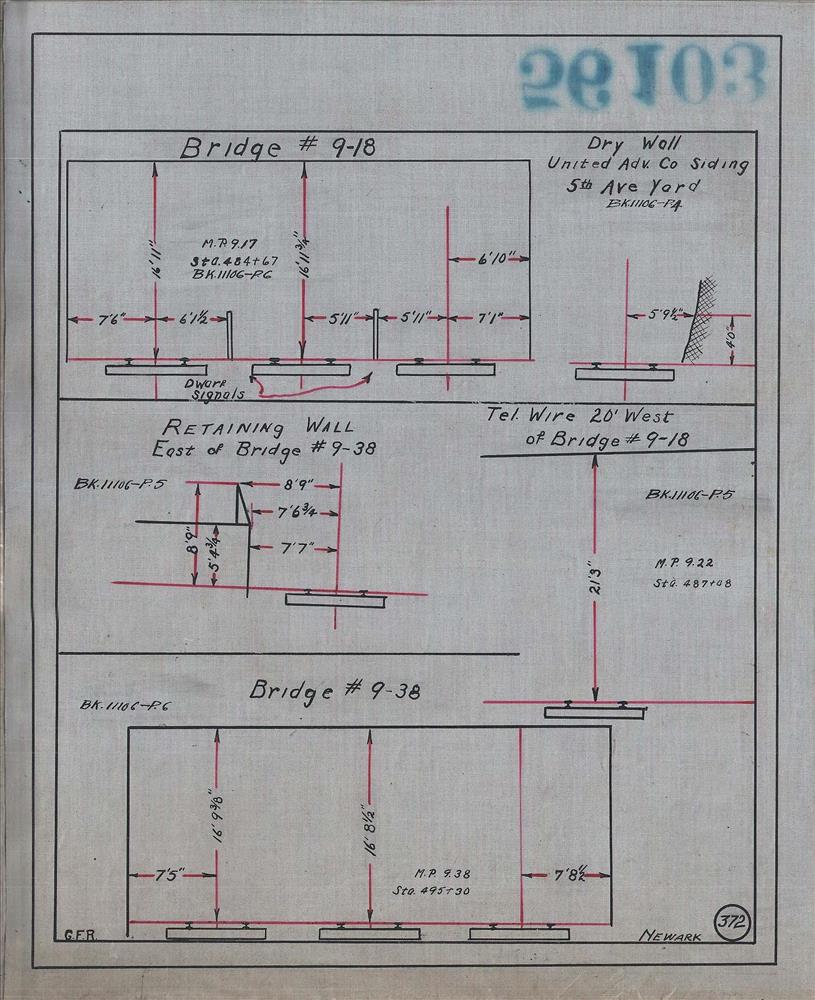 56103
Bridge # 9-18
16'11"
16'11 3/4"
M.P. 9.17
Sta. 484+67
BK.11106-P.6
6'10"
7'6"
6'1 1/2
5'11"
5'11"
7'1"
Dwarf
Signals
Dry Wall
United Adv. Co Siding
5th Ave Yard
BK.11106-P.4
5'9 1/2"
4'0"
RETAINING WALL
East of Bridge # 9-38
BK.11106-P.5
8'9"
7'6 3/4
7'7"
8'9"
5'4 3/4"
Tel. Wire 20' West
of Bridge # 9-18
BK.11106-P.5
21'3"
M.P. 9.22
Sta. 487+08
Bridge # 9-38
BK.11106-P.6
16' 9 3/8"
16' 8 1/2"
7'5"
M.P. 9.38
Sta. 495+30
7'8 1/2
G.F.R.
NEWARK
372